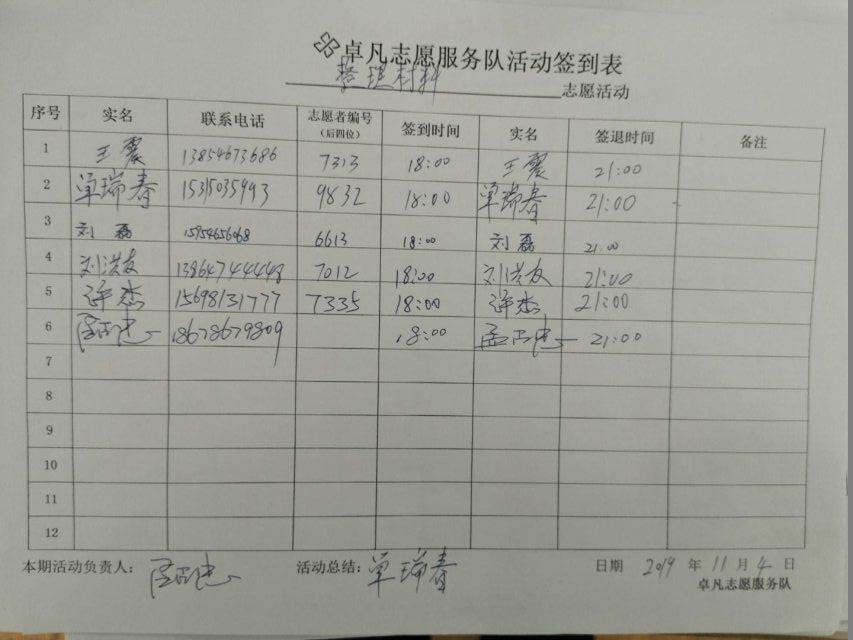 卓凡志愿服务队活动签到表
整理材料 志愿活动
序号 实名 联系电话 志愿者编号（后四位） 签到时间 实名 签退时间 备注
1 王震 13854673686 7313 18:00 王震 21:00
2 单瑞春 15315035993 9832 18:00 单瑞春 21:00
3 刘磊 15954656068 6613 18:00 刘磊 21:00
4 刘洪友 13864744448 7012 18:00 刘洪友 21:00
5 许杰 15698131777 7335 18:00 许杰 21:00
6 18678679809 18:00 21:00
7
8
9
10
11
12
本期活动负责人： 活动总结：单瑞春 日期 2019 年 11 月 4 日
卓凡志愿服务队